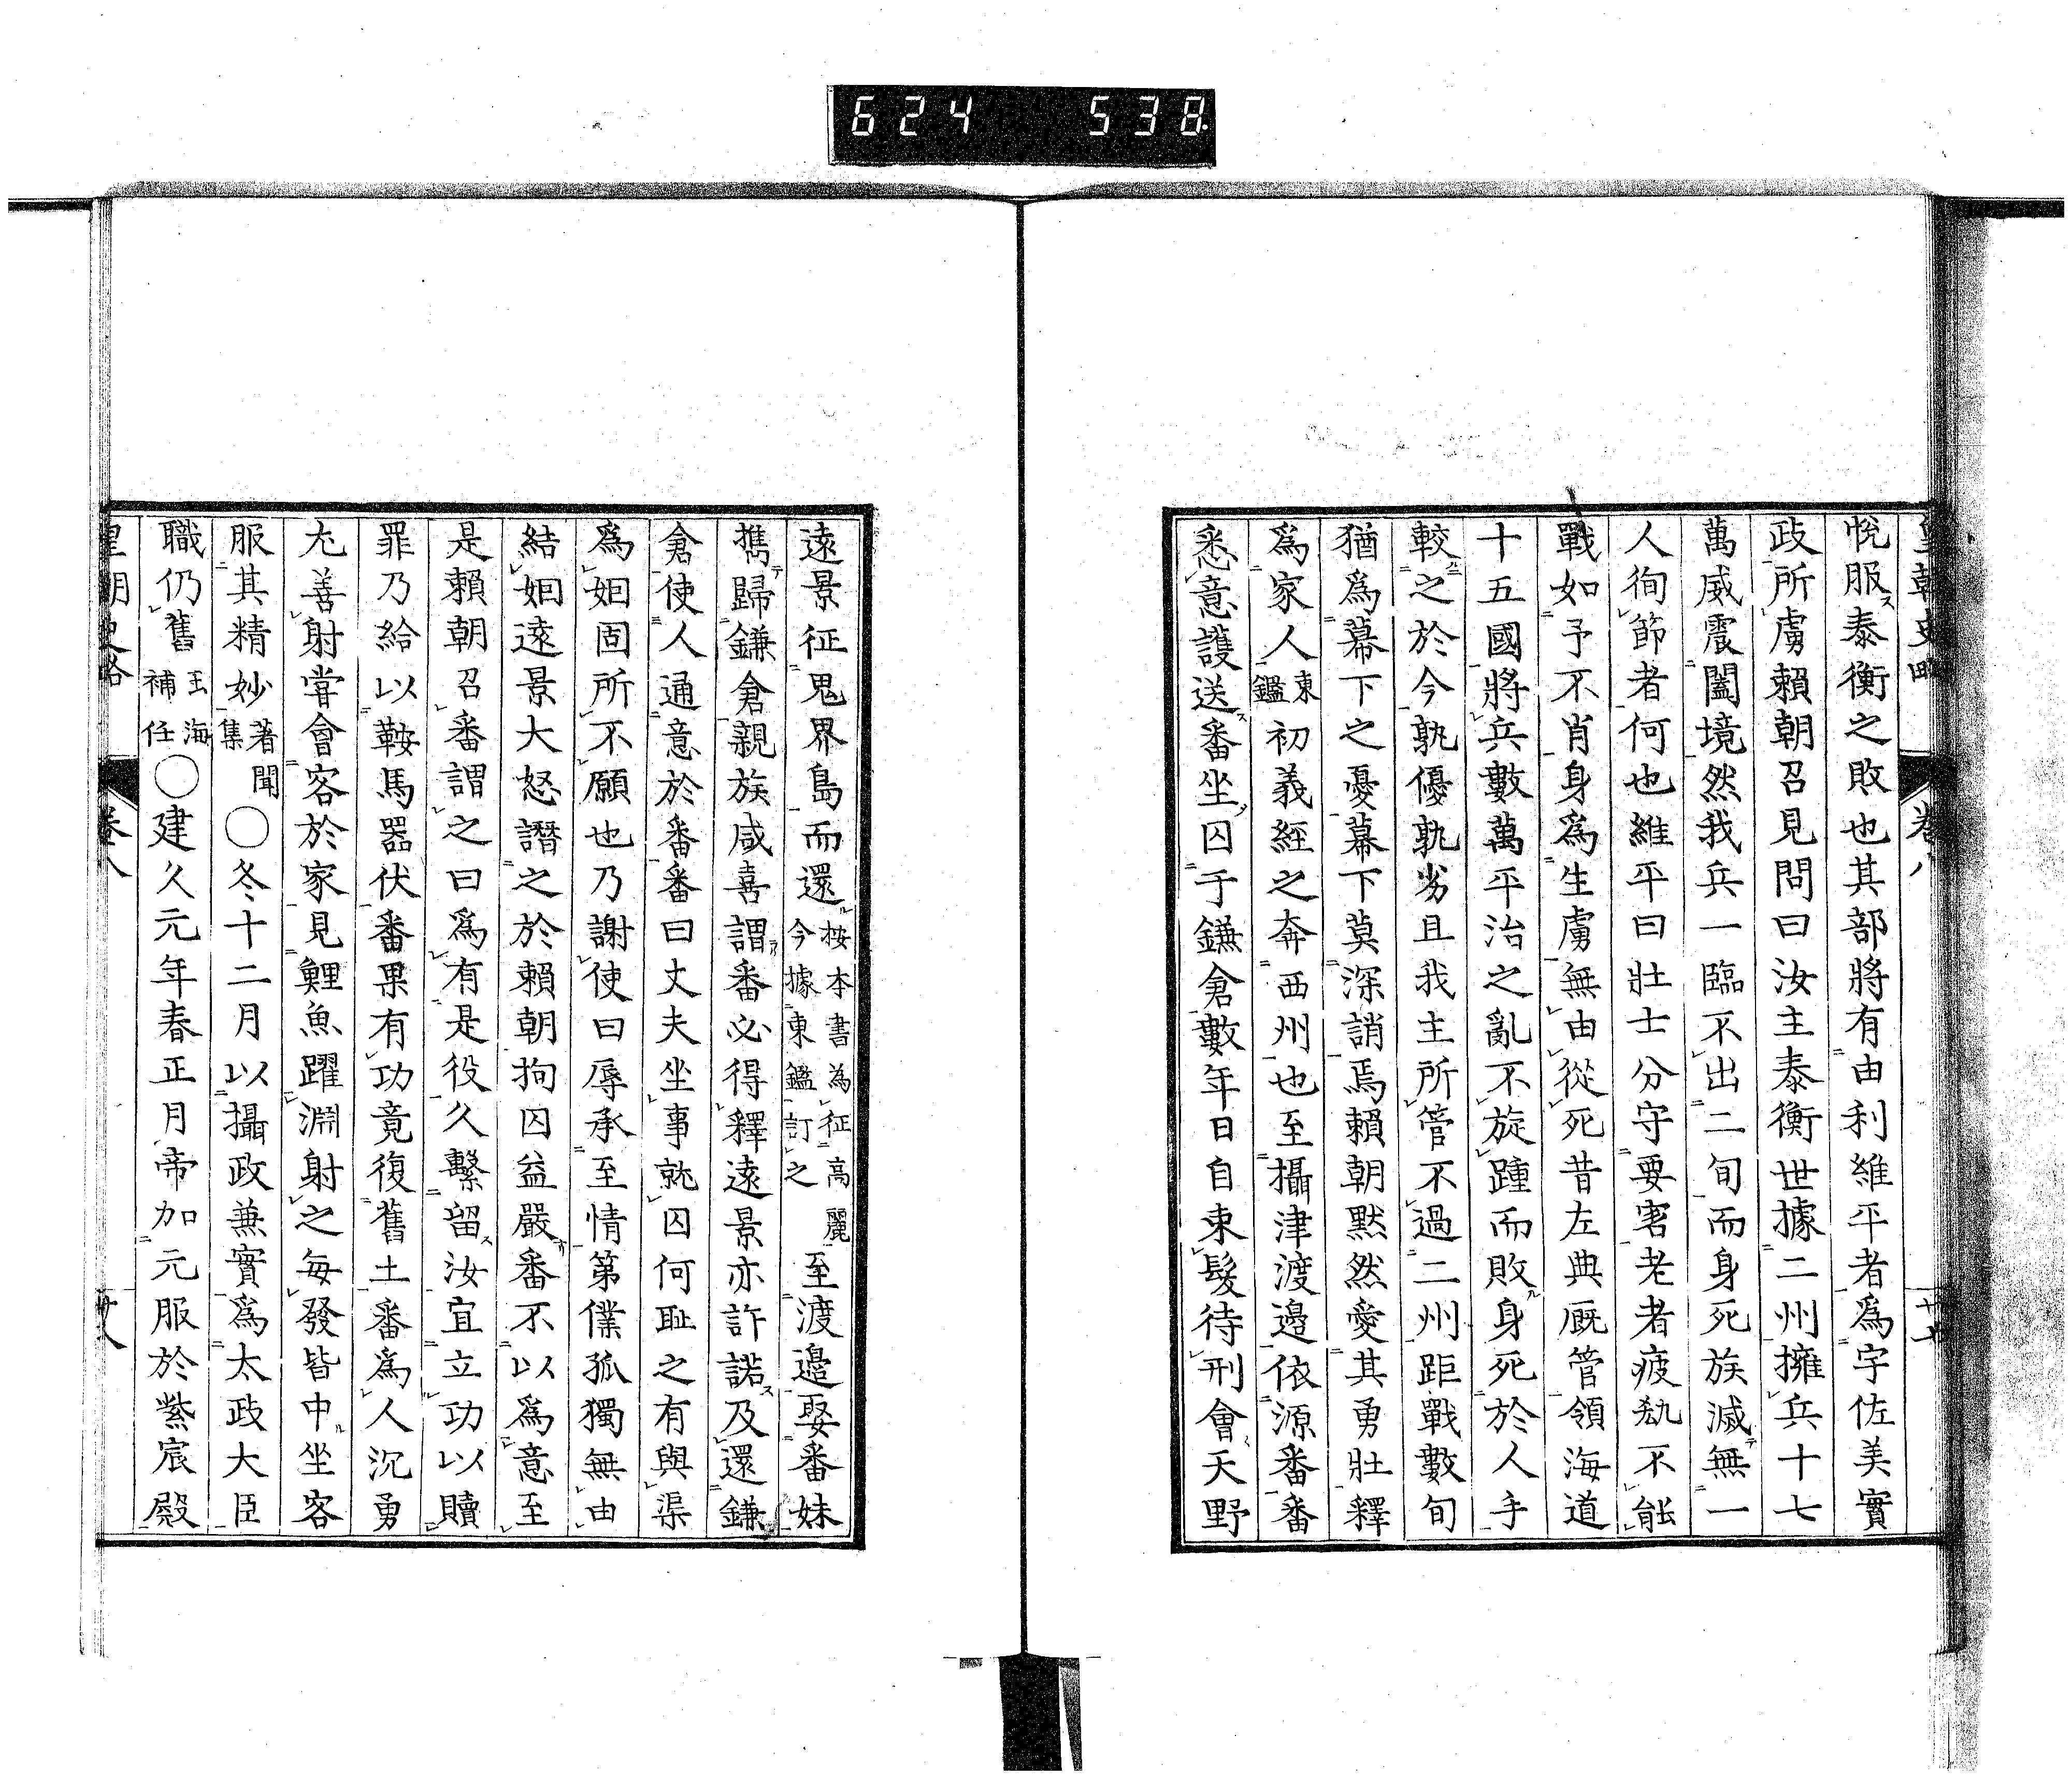 624 538
皇朝史略 卷八 廿七
悅服泰衡之敗也其部將有由利維平者爲宇佐美實
政所虜賴朝召見問曰汝主泰衡世據二州擁兵十七
萬威震闔境然我兵一臨不出二旬而身死族滅無一
人徇節者何也維平曰壯士分守要害老者疲劵不能
戰如予不肖身爲生虜無由從死昔左典厩管領海道
十五國將兵數萬平治之亂不旋踵而敗身死於人手
較之於今孰優孰劣且我主所管不過二州距戰數旬
猶爲幕下之憂幕下莫深誚焉賴朝默然愛其勇壯釋
爲家人東鑑初義經之奔西州也至攝津渡邉依源番番
悉意護送番坐囚于鎌倉數年日自束髮待刑會天野
遠景征鬼界島而還按本書爲征高麗今據東鑑訂之至渡邉娶番妹
携歸鎌倉親族咸喜謂番必得釋遠景亦許諾及還鎌
倉使人通意於番番曰丈夫坐事就囚何耻之有與渠
爲姻固所不願也乃謝使曰辱承至情第僕孤獨無由
結姻遠景大怒譖之於賴朝拘囚益嚴番不以爲意至
是賴朝召番謂之曰爲有是役久繫留汝宜立功以贖
罪乃給以鞍馬器伏番果有功竟復舊土番爲人沉勇
尢善射嘗會客於家見鯉魚躍淵射之每發皆中坐客
服其精妙著聞集〇冬十二月以攝政兼實爲太政大臣
職仍舊玉海補任〇建久元年春正月帝加元服於紫宸殿
皇朝史略 卷八 廿八